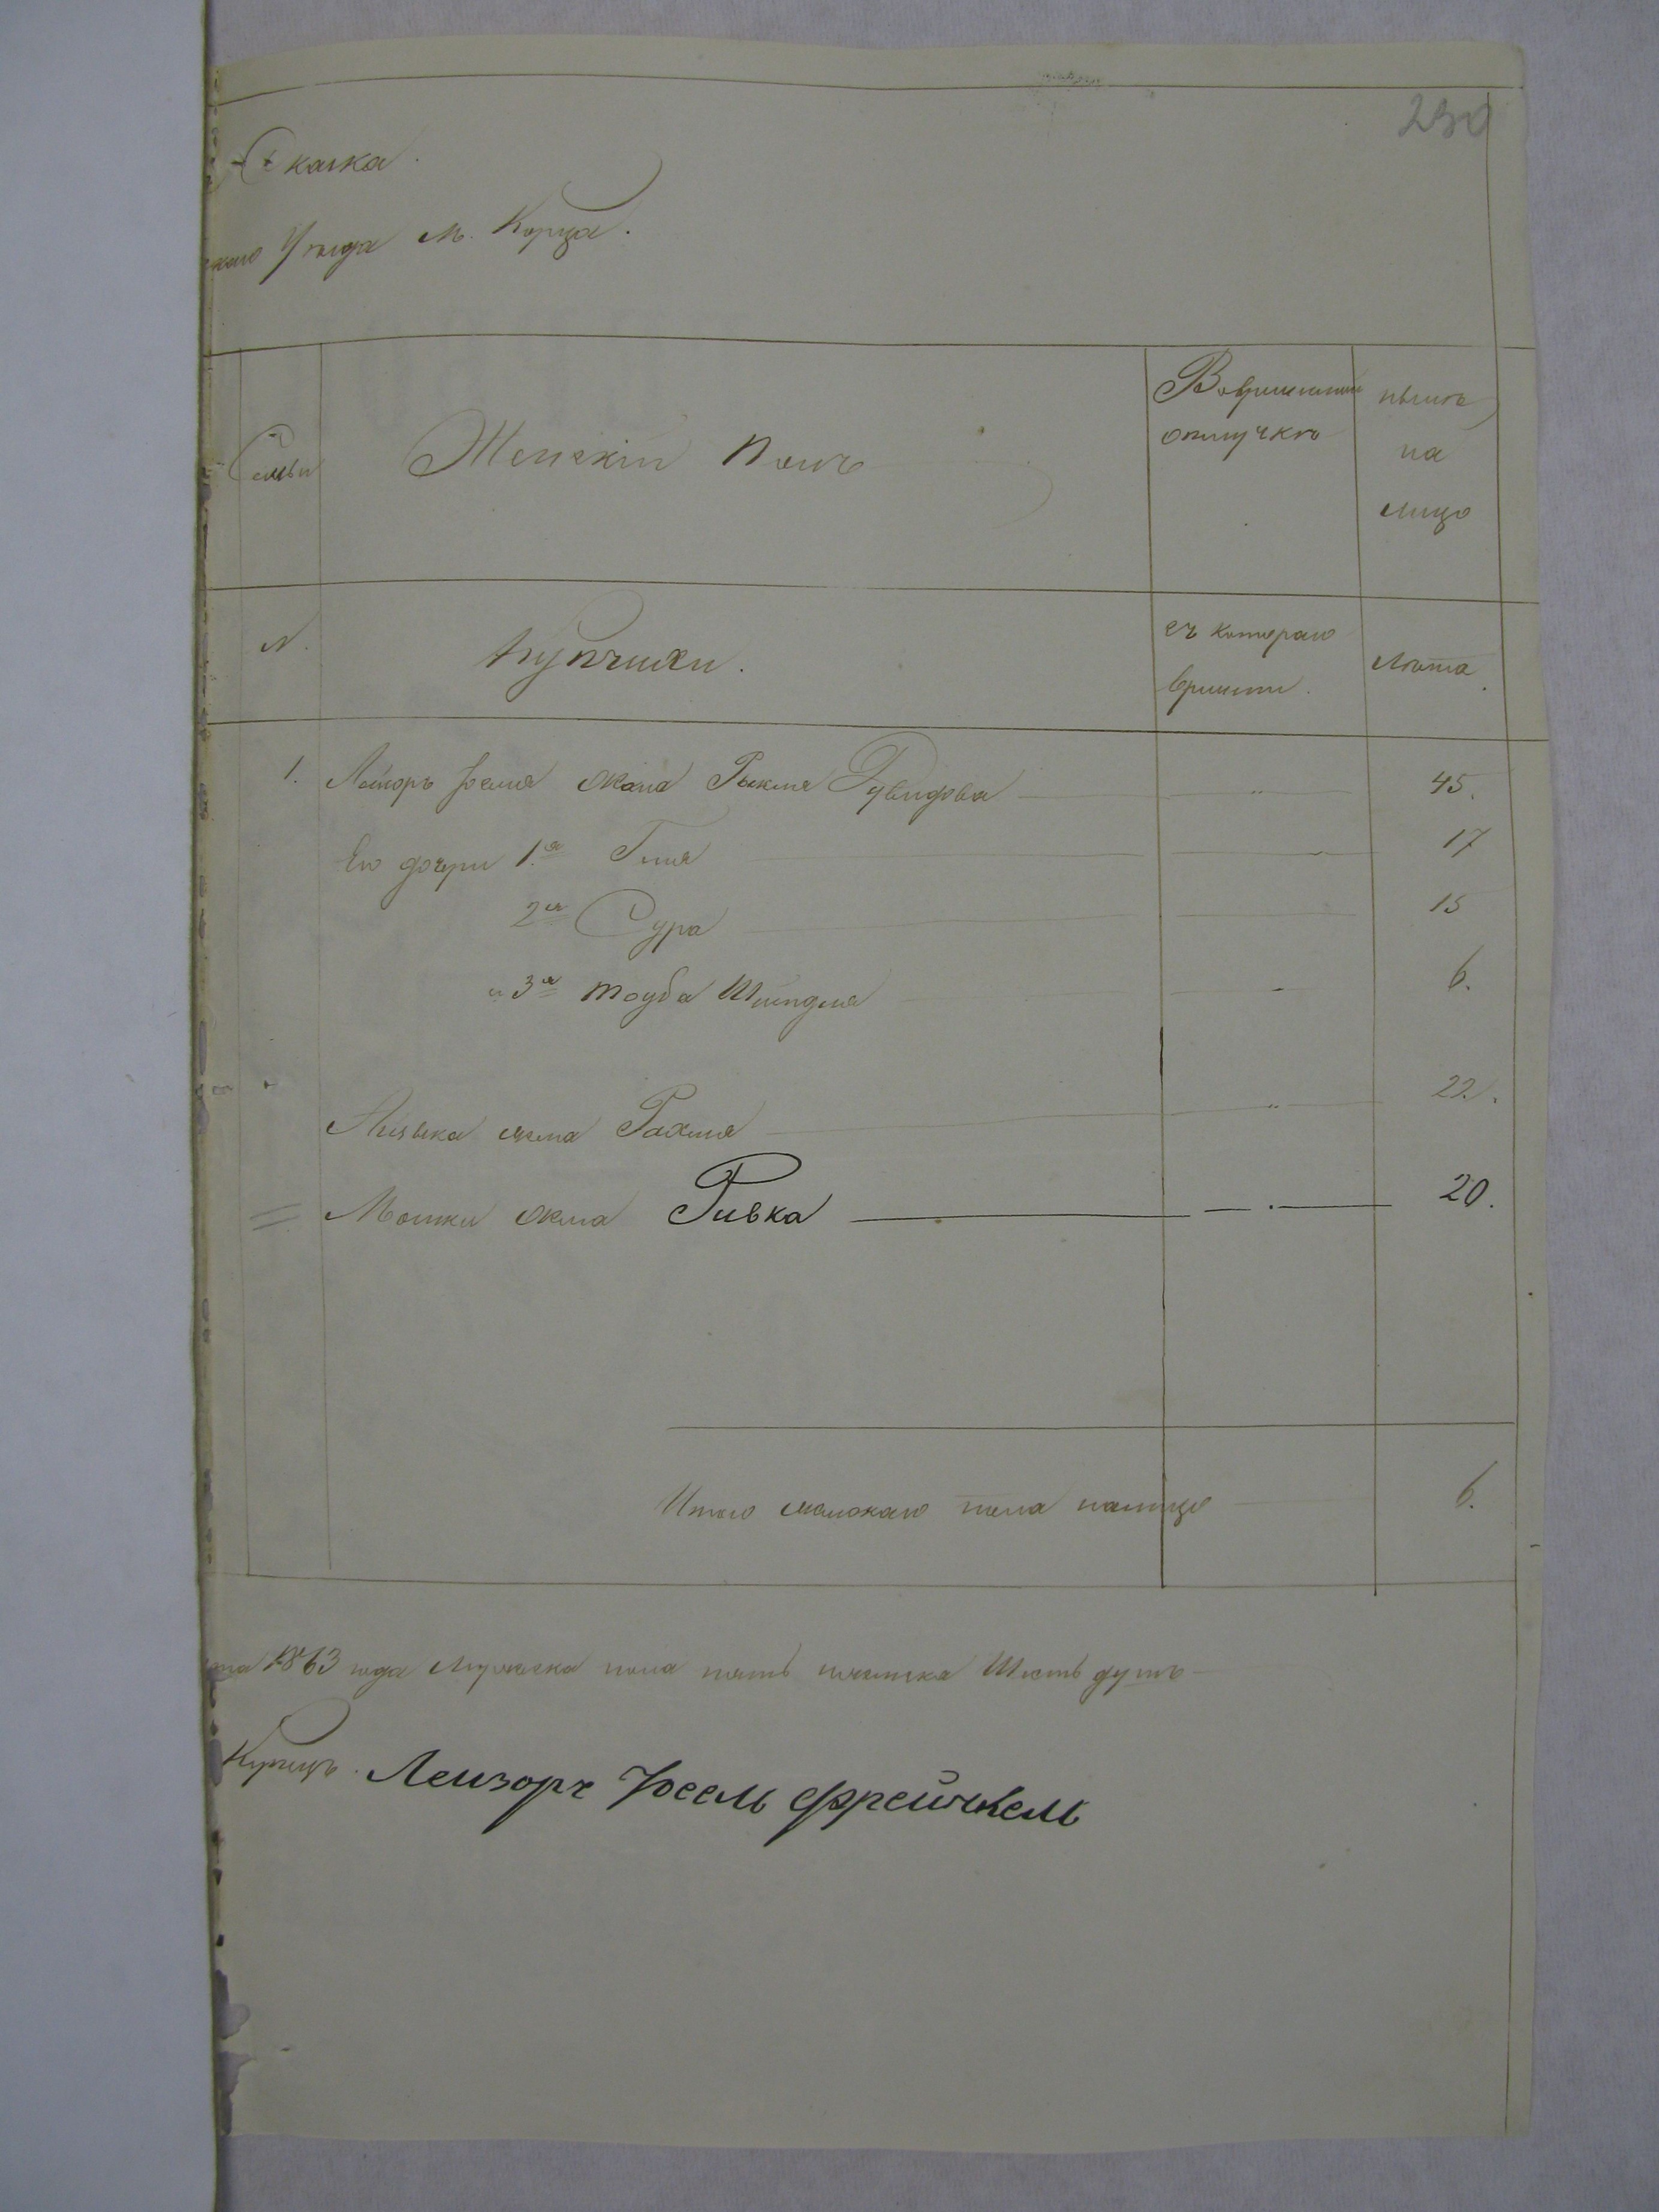 230
Сказка.
скаго Уѣзда М. Корца.
Семьи
Женскій полъ
Вовременной отлучкѣ
нынѣ на лицо
№.
Купчихи.
съ котораго времени.
Лѣта.
1. Лейзоръ Іоселя жена Рыкля Дувидова 45.
Его дочери 1.я Гитля 17
2я Сура 15
и 3я Тоуба Шейндля 6.
жена Рахля 22.
Мошки жена Ривка 20.
Итого женскаго пола налицо 6.
1863 года Мужеска пола пять женска Шесть душъ
Купецъ. Лейзоръ Іосель